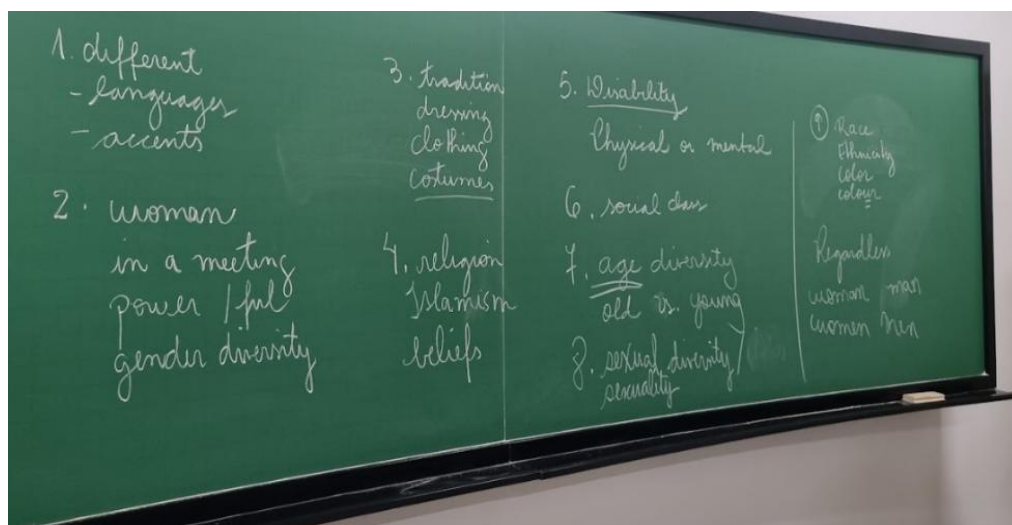 1. different
- languages
- accents
2. woman
in a meeting
power / ful
gender diversity
3. tradition
dressing
clothing
costumes
4. religion
Islamism
beliefs
5. Disability
Physical or mental
6. social class
7. age diversity
old vs. young
8. sexual diversity /
sexuality
9 Race
Ethnicity
color
colour
Regardless
woman man
women men